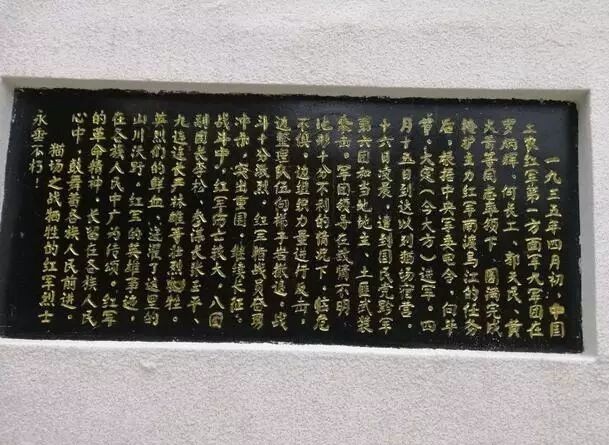 一九三五年四月初，中国
工农红军第一方面军九军团在
罗炳辉、何长工、郭天民、黄
火青等同志率领下，圆满完成
掩护主力红军南渡乌江的任务
后，根据中央军委电令，向毕
节、大定（今大方）进军。四
月十五日到达以列猫场宿营。
十六日凌晨，遭到国民党黔军
第六团和当地地主、土匪武装
袭击。军团领导在敌情不明
地形十分不利的情况下，临危
不惧，边组织力量进行反击，
边整理队伍向梯子岩撤退。战
斗十分激烈，红军指战员奋勇
冲杀，突出重围，继续长征
战斗中，红军伤亡较大，八团
副团长李松、参谋长张三平
九连连长严林雄等壮烈牺牲。
英烈们的鲜血，浇灌了这里的
山川沃野，红军的英雄事迹
在各族人民中广为传颂。红军
的革命精神，长留在各族人民
心中，鼓舞着各族人民前进。
猫场之战牺牲的红军烈士
永垂不朽！